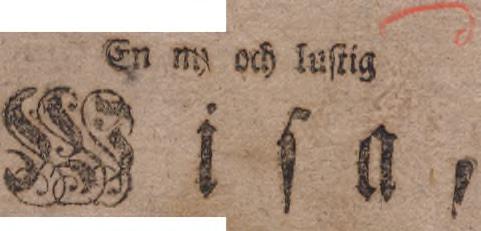 En ny och lustig
Wisa,